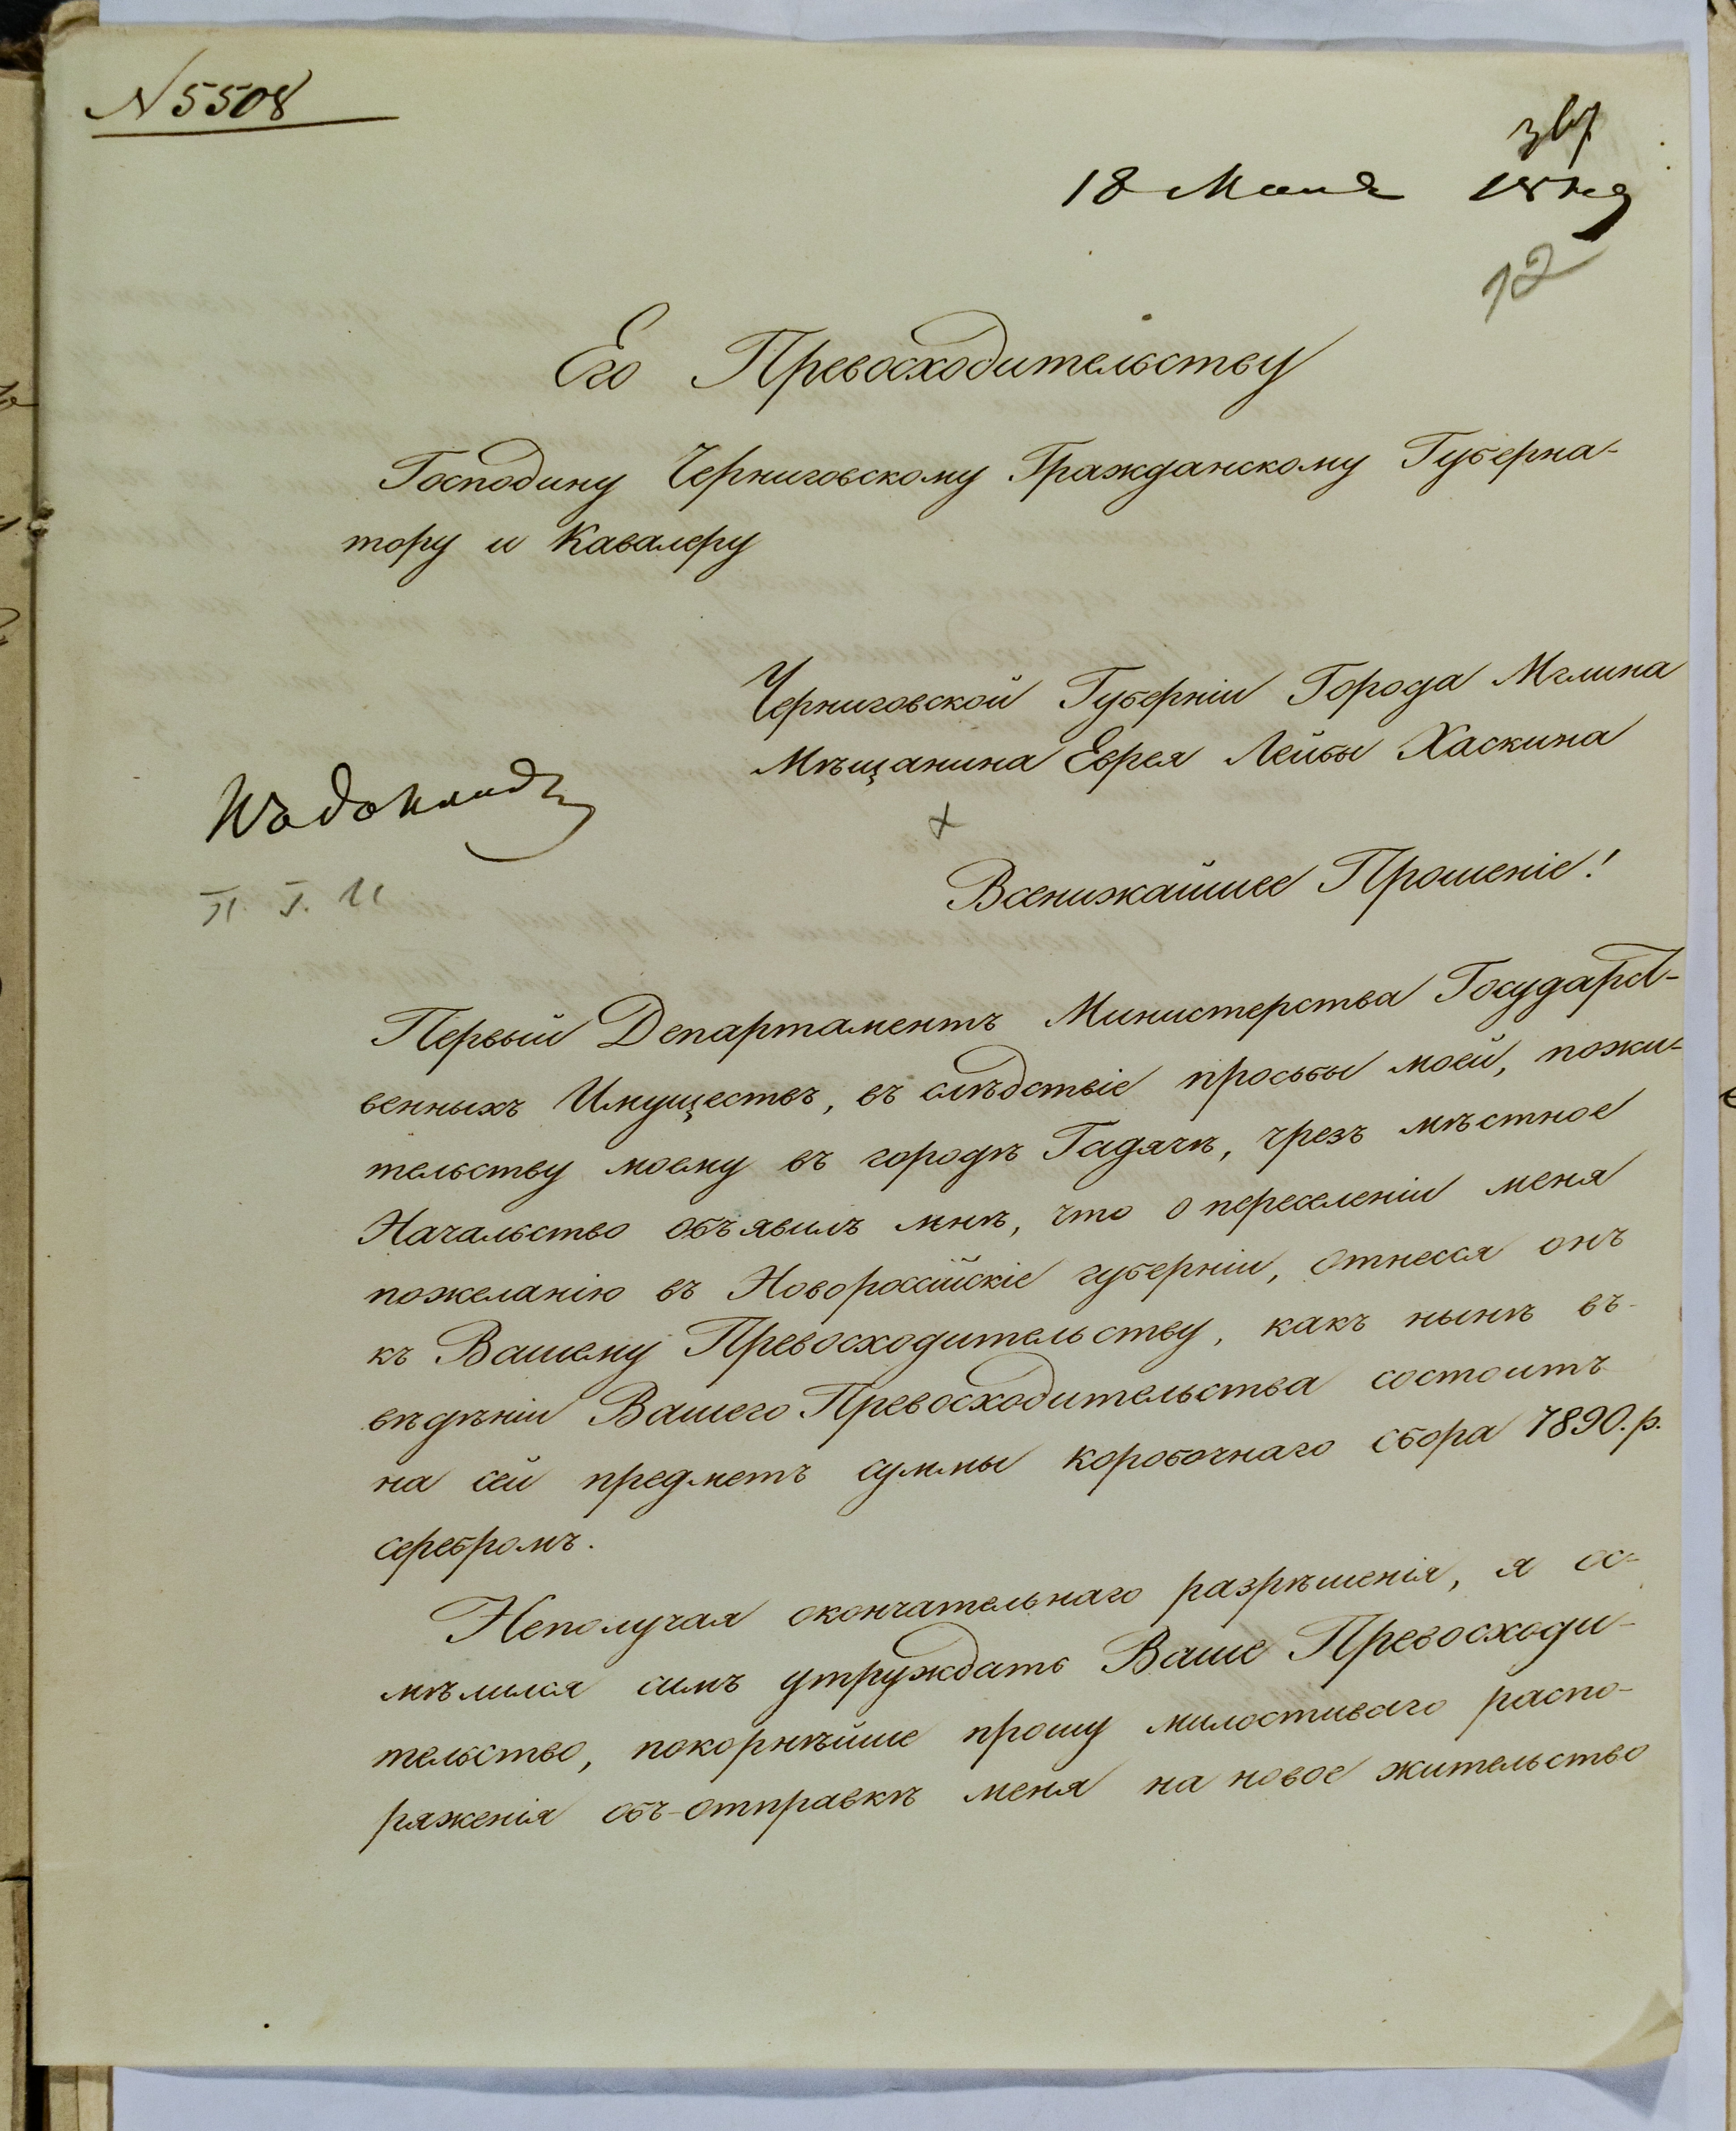 N 5508
18 Мая
12
Его Превосходительству
Господину Черниговскому Гражданскому Губерна-
тору и Кавалеру
Черниговской Губерніи Города Мглина
Мѣщанина Еврея Лейбы Хаскина
Къ докладу
Всенижайшее Прошеніе!
Первый Департаментъ Министерства Государст-
венныхъ Имуществъ, въ слѣдствіе просьбы моей, пожи-
тельству моему въ городѣ Гадячѣ, чрезъ мѣстное
Начальство объявилъ мнѣ, что о переселеніи меня
пожеланію въ Новороссійскіе губерніи, отнесся онъ
къ Вашему Превосходительству, какъ нынѣ въ-
вѣдѣніи Вашего Превосходительства состоитъ
на сей предметъ суммы коробочнаго сбора 7890.р.
серебромъ.
Неполучая окончательнаго разрѣшенія, я ос-
мѣлился симъ утруждать Ваше Превосходи-
тельство, покорнѣйше прошу милостиваго распо-
ряженія объ-отправкѣ меня на новое жительство